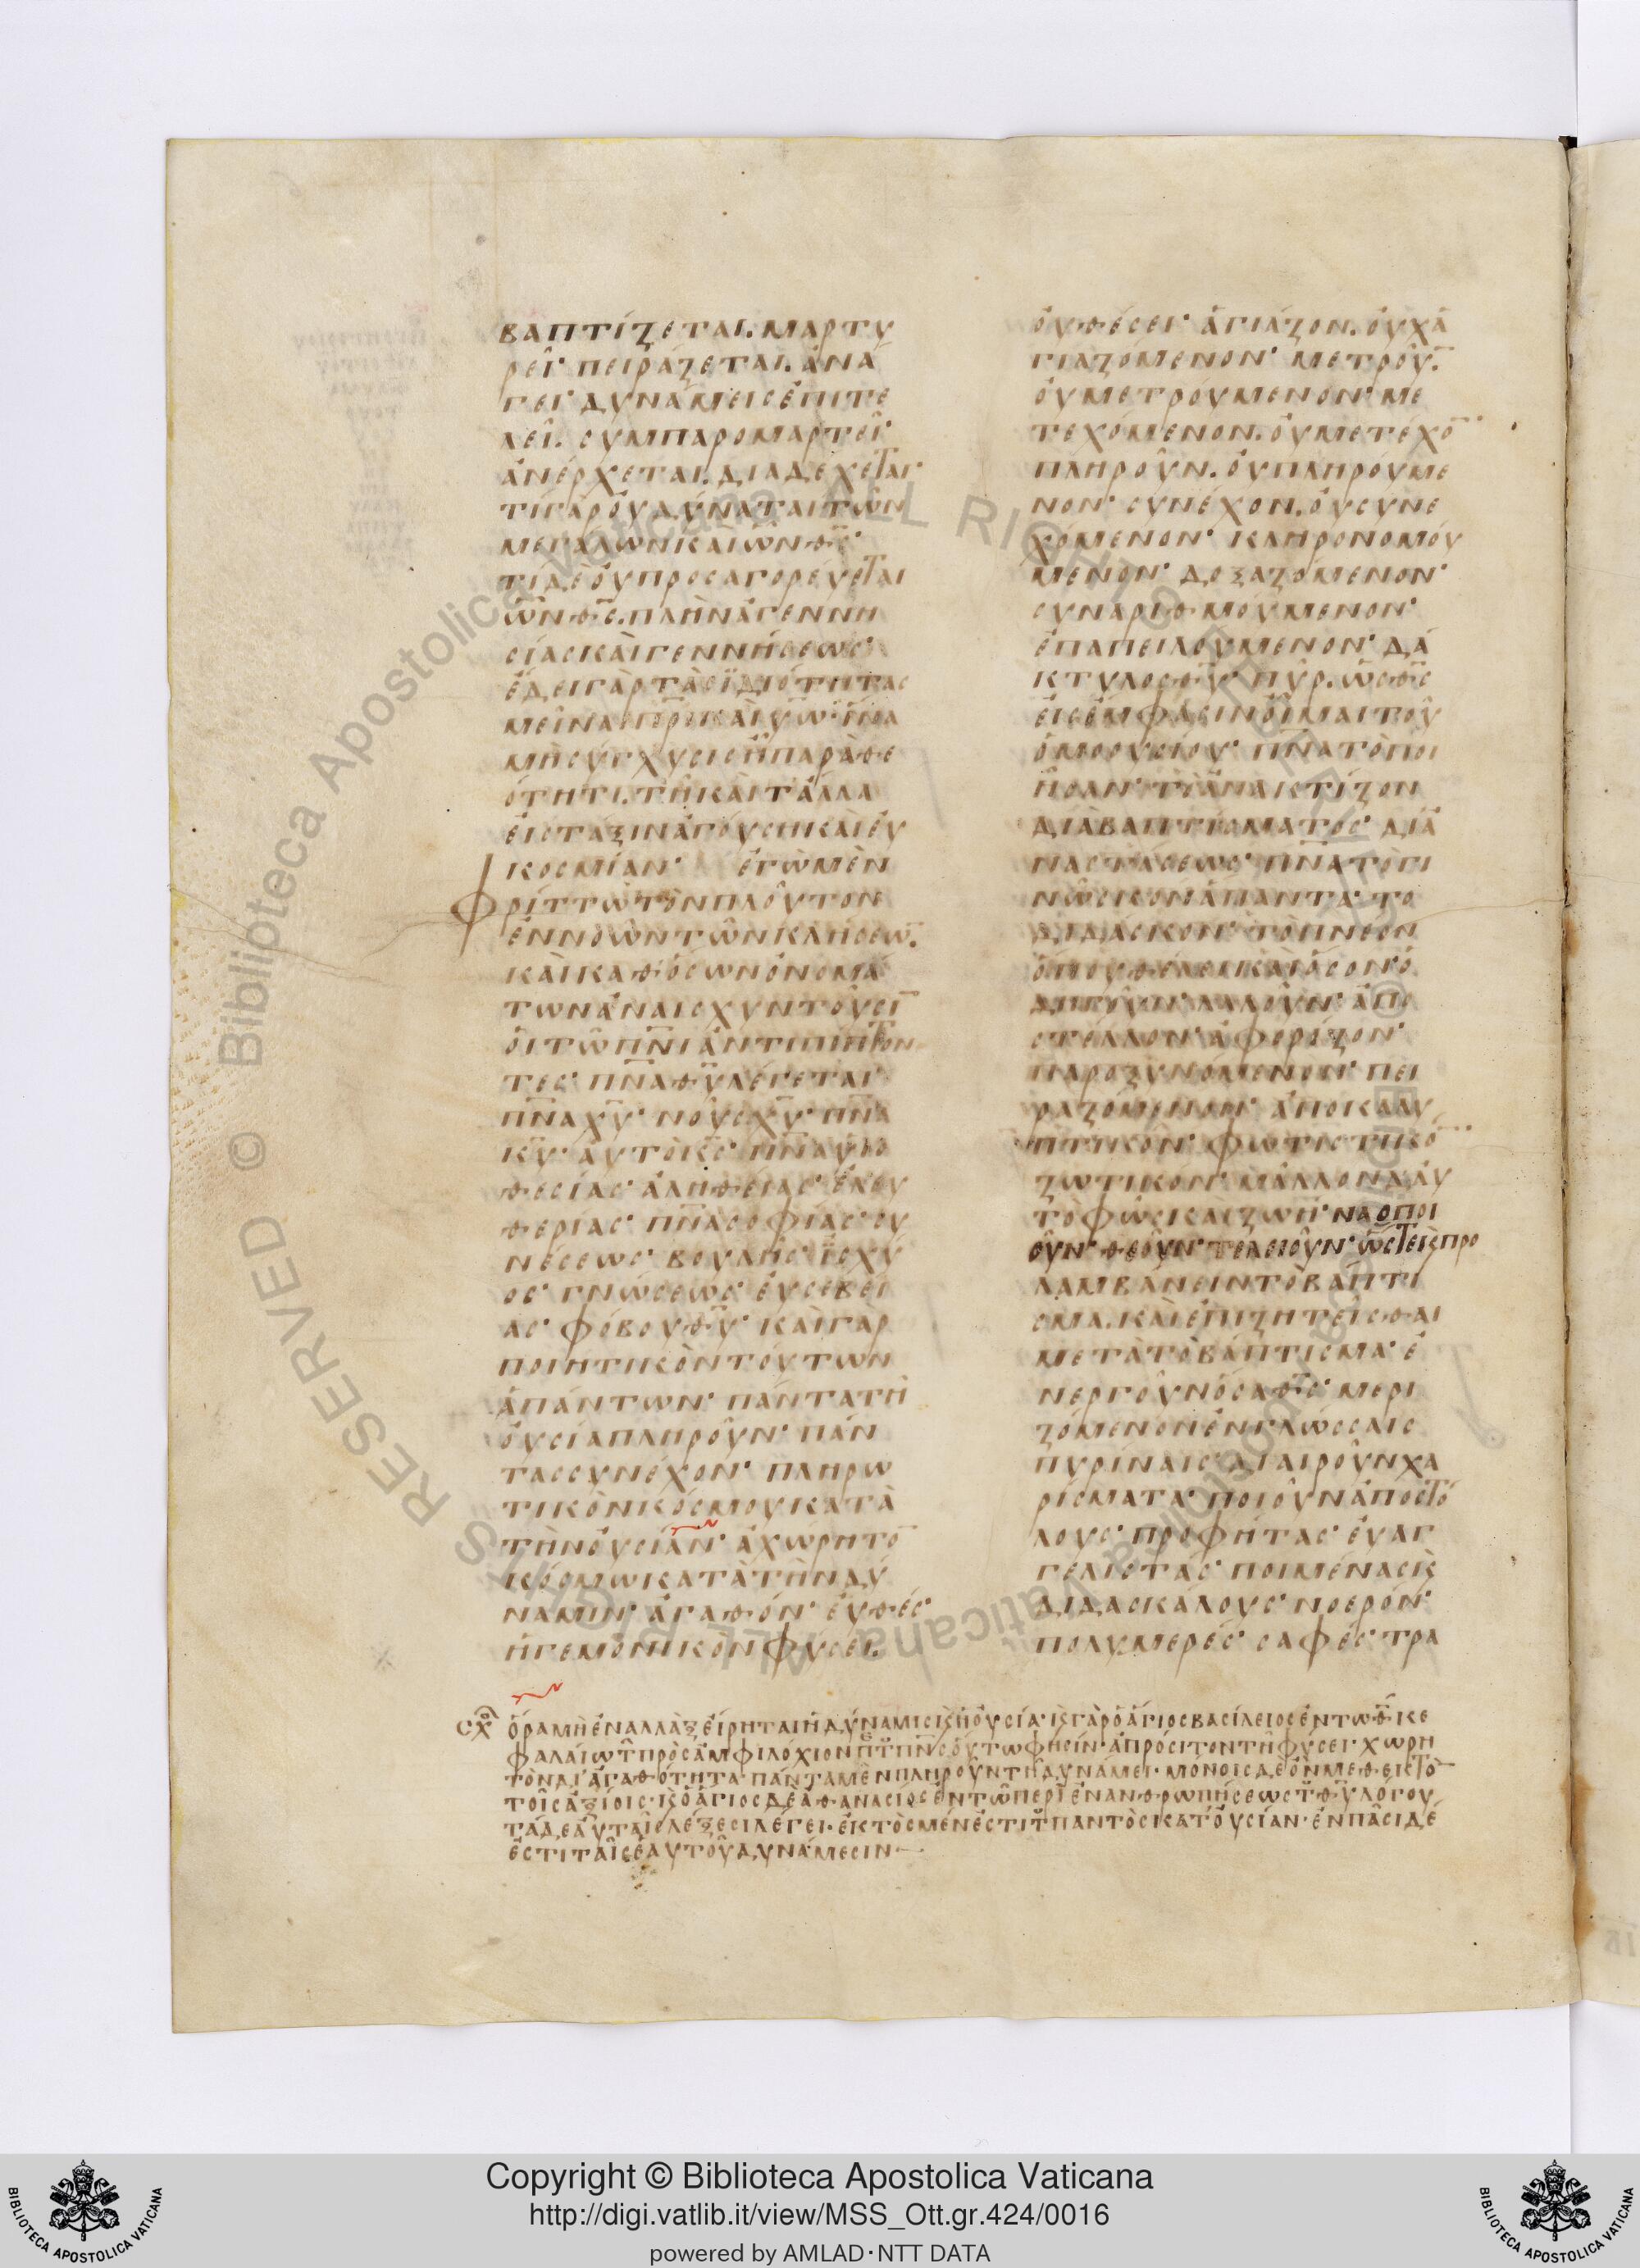 βαπτίζεται. μαρτυ
ρεῖ· πειράζεται. ἀνά
γει· δυνάμεις ἐπιτε
λεῖ. συμπαρομαρτεῖ·
ἀνέρχεται. διαδέχεται·
τί γὰρ οὐ δύναται τῶν
μεγάλων καὶ ὧν θ̅ς̅·
τί δὲ οὐ προσαγορεύεται
ὧν θ̅ς̅. πλὴν ἀγεννη
σίας καὶ γεννήσεως·
ἔδει γὰρ τὰς ἰδιότητας
μεῖναι π̅ρ̅ι̅ καὶ υ̅ω̅· ἵνα
μὴ σύγχυσις ἦ παρὰ θε
ότητι. τῆ καὶ τἄλλα
εἰς τάξιν ἀγούση καὶ εὐ
κοσμίαν· ἐγὼ μὲν
φρίττω τὸν πλοῦτον
ἐννοῶν τῶν κλήσεω̅.
καὶ καθ' ὅσων ὀνομά
των ἀναισχυντοῦσι̅
οἱ τῶ π̅ν̅ι̅ ἀντιπίπτον
τες· π̅ν̅α̅ θ̅υ̅ λέγεται·
π̅ν̅α̅ χ̅υ̅· νοῦς χ̅υ̅· π̅ν̅α̅
κ̅υ̅· αὐτὸ κ̅ς̅· π̅ν̅α̅ υἱο
θεσίας· ἀληθείας· ἐλευ
θερίας· π̅ν̅α̅ σοφίας· συ
νέσεως· βουλῆς· ἰσχύ
ος· γνώσεως· εὐσεβεί
ας· φόβου θ̅υ̅· καὶ γὰρ
ποιητικὸν τούτων
ἁπάντων· πάντα τῆ
οὐσία πληροῦν· πάν
τα συνέχον· πληρω
τικὸν κόσμου κατὰ
τὴν οὐσίαν· ἀχώρητο̅
κόσμω κατὰ τὴν δύ
ναμιν· ἀγαθόν· εὐθές·
ἡγεμονικὸν φύσει.
οὐ θέσει· ἁγιάζον. οὐχ ἁ
γιαζόμενον· μετροῦ̅.
οὐ μετρούμενον· με
τεχόμενον. οὐ μετέχο̅·
πληροῦν. οὐ πληρούμε
νον· συνέχον. οὐ συνε
χόμενον· κληρονομού
μενον· δοξαζόμενον·
συναριθμούμενον·
ἐπαπειλούμενον· δά
κτυλος θ̅υ̅· πῦρ. ὡς θ̅ς̅
εἰς ἔμφασιν οἶμαι τοῦ
ὁμοουσίου· π̅ν̅α̅ τὸ ποι
ῆσαν· τὸ ἀνακτίζον
διὰ βαπτίσματος· δι' ἀ
ναστάσεως· π̅ν̅α̅ τὸ γι
νῶσκον ἅπαντα· τὸ
διδάσκον· τὸ πνέον
ὅπου θέλει καὶ ὅσον· ὁ
δηγοῦν· λαλοῦν· ἀπο
στέλλον· ἀφορίζον·
παροξυνόμενον· πει
ραζόμενον· ἀποκαλυ
πτικὸν· φωτιστικό̅·
ζωτικόν· μᾶλλον δὲ αὐ
τὸ φῶς καὶ ζωή· ναοποι
οῦν· θεοῦν· τελειοῦν· ὥστε ϗ προ
λαμβάνειν τὸ βάπτι
σμα. καὶ ἐπιζητεῖσθαι
μετὰ τὸ βάπτισμα· ἐ
νεργοῦν ὅσα θ̅ς̅· μερι
ζόμενον ἐν γλώσσαις
πυρίναις· διαιροῦν χα
ρίσματα· ποιοῦν ἀποστό
λους· προφήτας· εὐαγ
γελιστάς· ποιμένας ϗ
διδασκάλους· νοερόν·
πολυμερές· σαφές· τρα
σχο ὅρα μὴ ἐναλλὰξ εἴρηται ἡ δύναμις ϗ ἡ οὐσία· ϗ γὰρ ὁ ἅγιος βασίλειος ἐν τῶ θ̅ κε
φαλαίω τ πρὸς ἀμφιλόχιον π τ π̅ν̅ς̅ οὕτω φησίν· ἀπρόσιτον τῆ φύσει· χωρη
τὸν δι' ἀγαθότητα· πάντα μὲν πληροῦν τῆ δυνάμει· μόνοις δὲ ὂν μεθεκτὸ̅
τοῖς ἀξίοις· ϗ ὁ ἅγιος δὲ ἀθανάσιος ἐν τῶ περὶ ἐνανθρωπήσεως τ θ̅υ̅ λόγου
τάδε αὐταῖς λέξεσι λέγει· ἐκτὸς μέν ἐστι τ παντὸς κατ' οὐσίαν· ἐν πᾶσι δέ
ἐστι ταῖς ἑαυτοῦ δυνάμεσιν
Copyright © Biblioteca Apostolica Vaticana
http://digi.vatlib.it/view/MSS_Ott.gr.424/0016
powered by AMLAD·NTT DATA